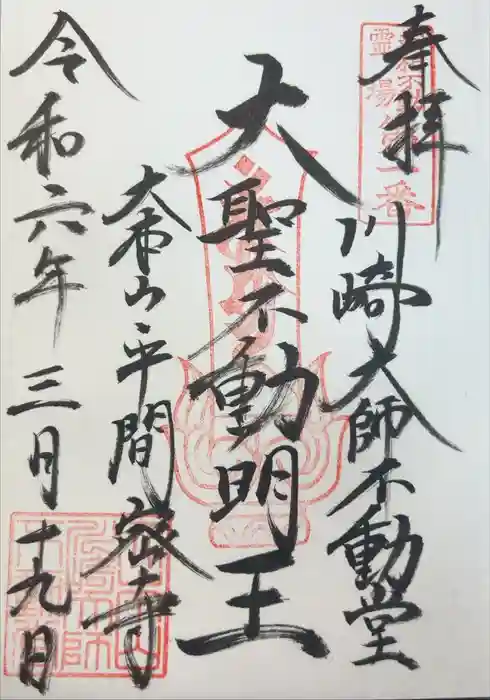 奉拝
川崎大師不動堂
大聖不動明王
大本山平間密寺
令和六年三月十九日
霊場
第一番